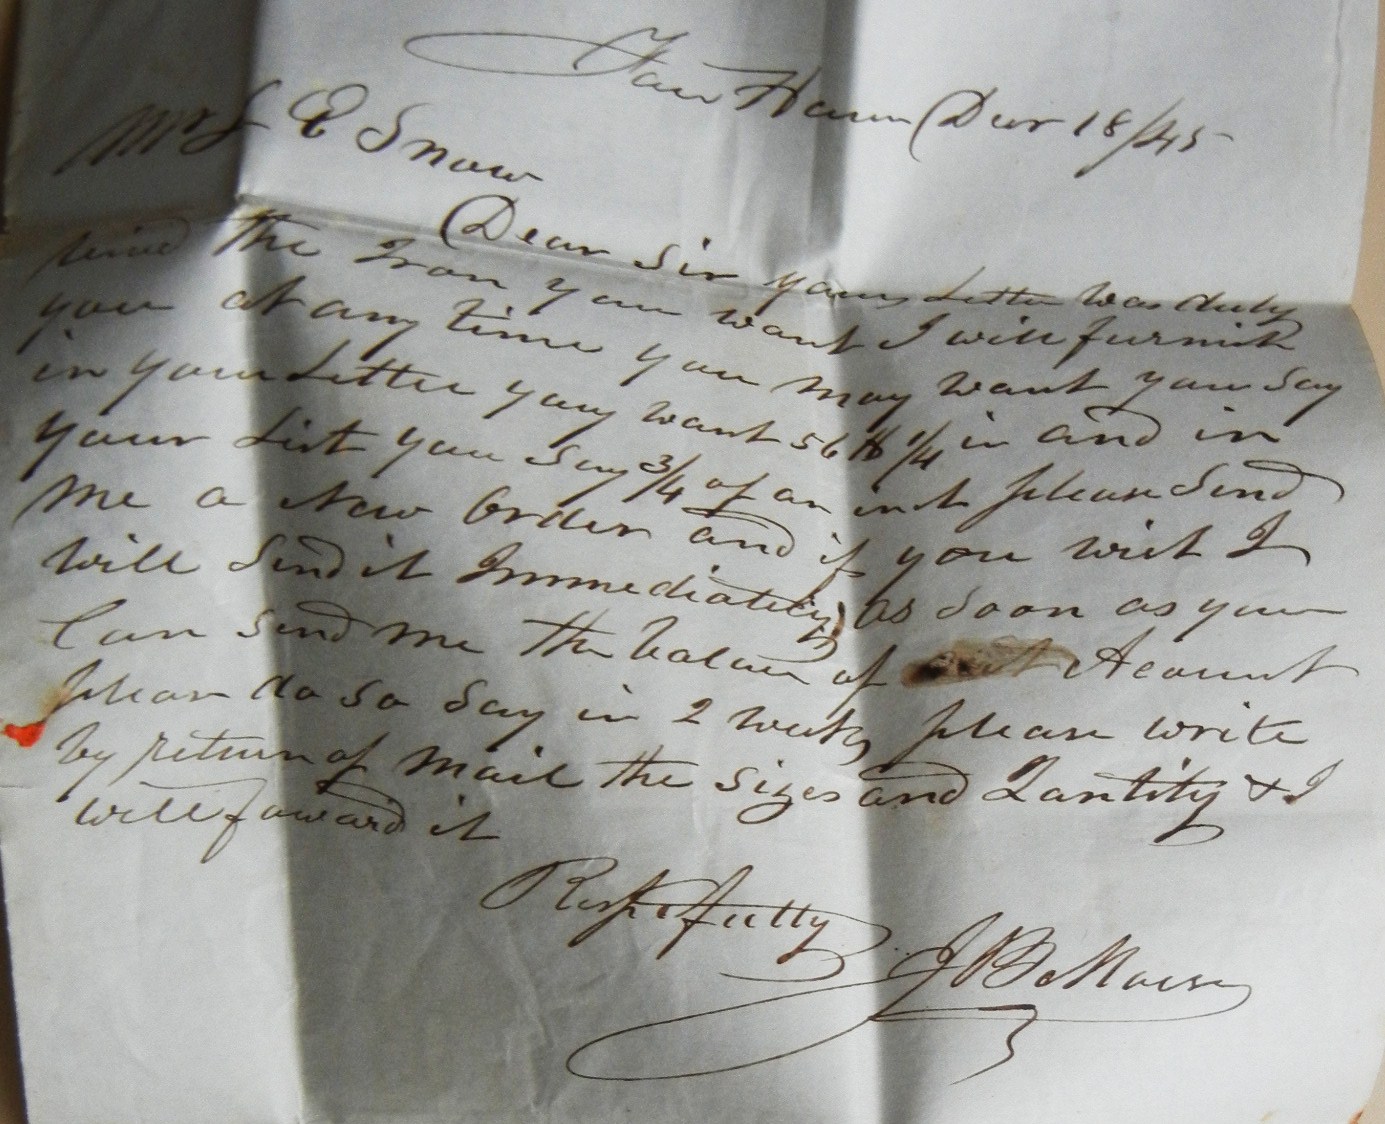 Fair Haven Decr 18/45
Mr S E Snow
Dear Sir your Letter was duly
the Iron you want I will furnish
you at any time you may want you Say
in your Letter you want 56 lb 1/4 in and in
your List you Say 3/4 of an inch please Send
me a New order and if you wish I
will Send it Immediately as Soon as you
Can Send me the balance of Acount
please do so Say in 2 weeks please write
by return of Mail the sizes and Qantity & I
will foward it
Respectfully